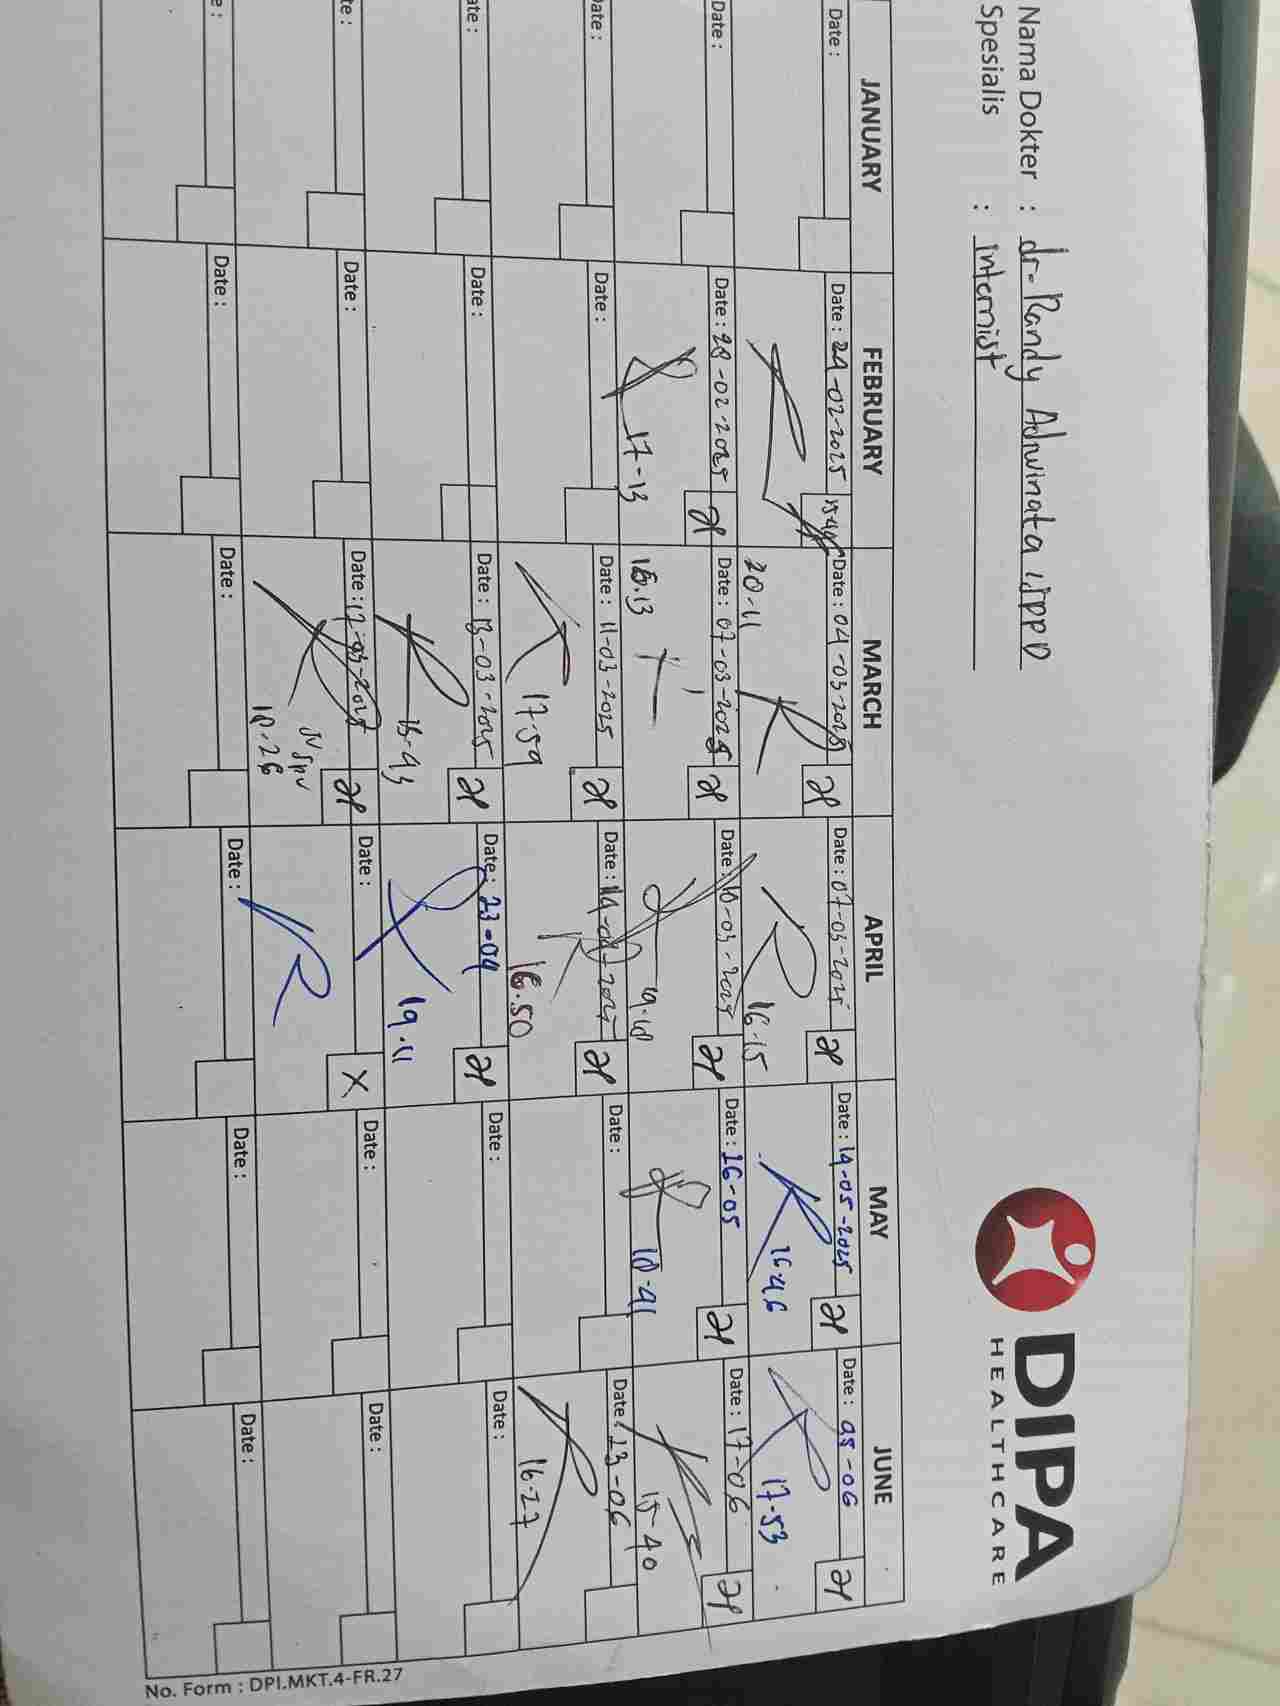 Nama Dokter : dr. Randy Adiwinata, SpPD
Spesialis : Internist
DIPA
HEALTHCARE
JANUARY FEBRUARY MARCH APRIL MAY JUNE
Date : Date : 24-02-2025 Date : 04-03-2025 Date : 07-03-2025 Date : 14-05-2025 Date : 05-06
20-11 16-15 16-46 17-53
Date : Date : 28-02-2025 Date : 07-03-2025 Date : 10-03-2025 Date : 16-05 Date : 17-06
17-13 18.13 19-18 18-41 15-40
Date : Date : Date : 11-03-2025 Date : 14-04-2025 Date : Date : 23-06
17-59 16.50 16-27
Date : Date : Date : 13-03-2025 Date : 23-04 Date : Date :
19.11
Date : Date : Date : 17-03-2025 Date : X Date : Date :
18-26
Date : Date : Date : Date : Date : Date :
No. Form : DPI.MKT.4-FR.27